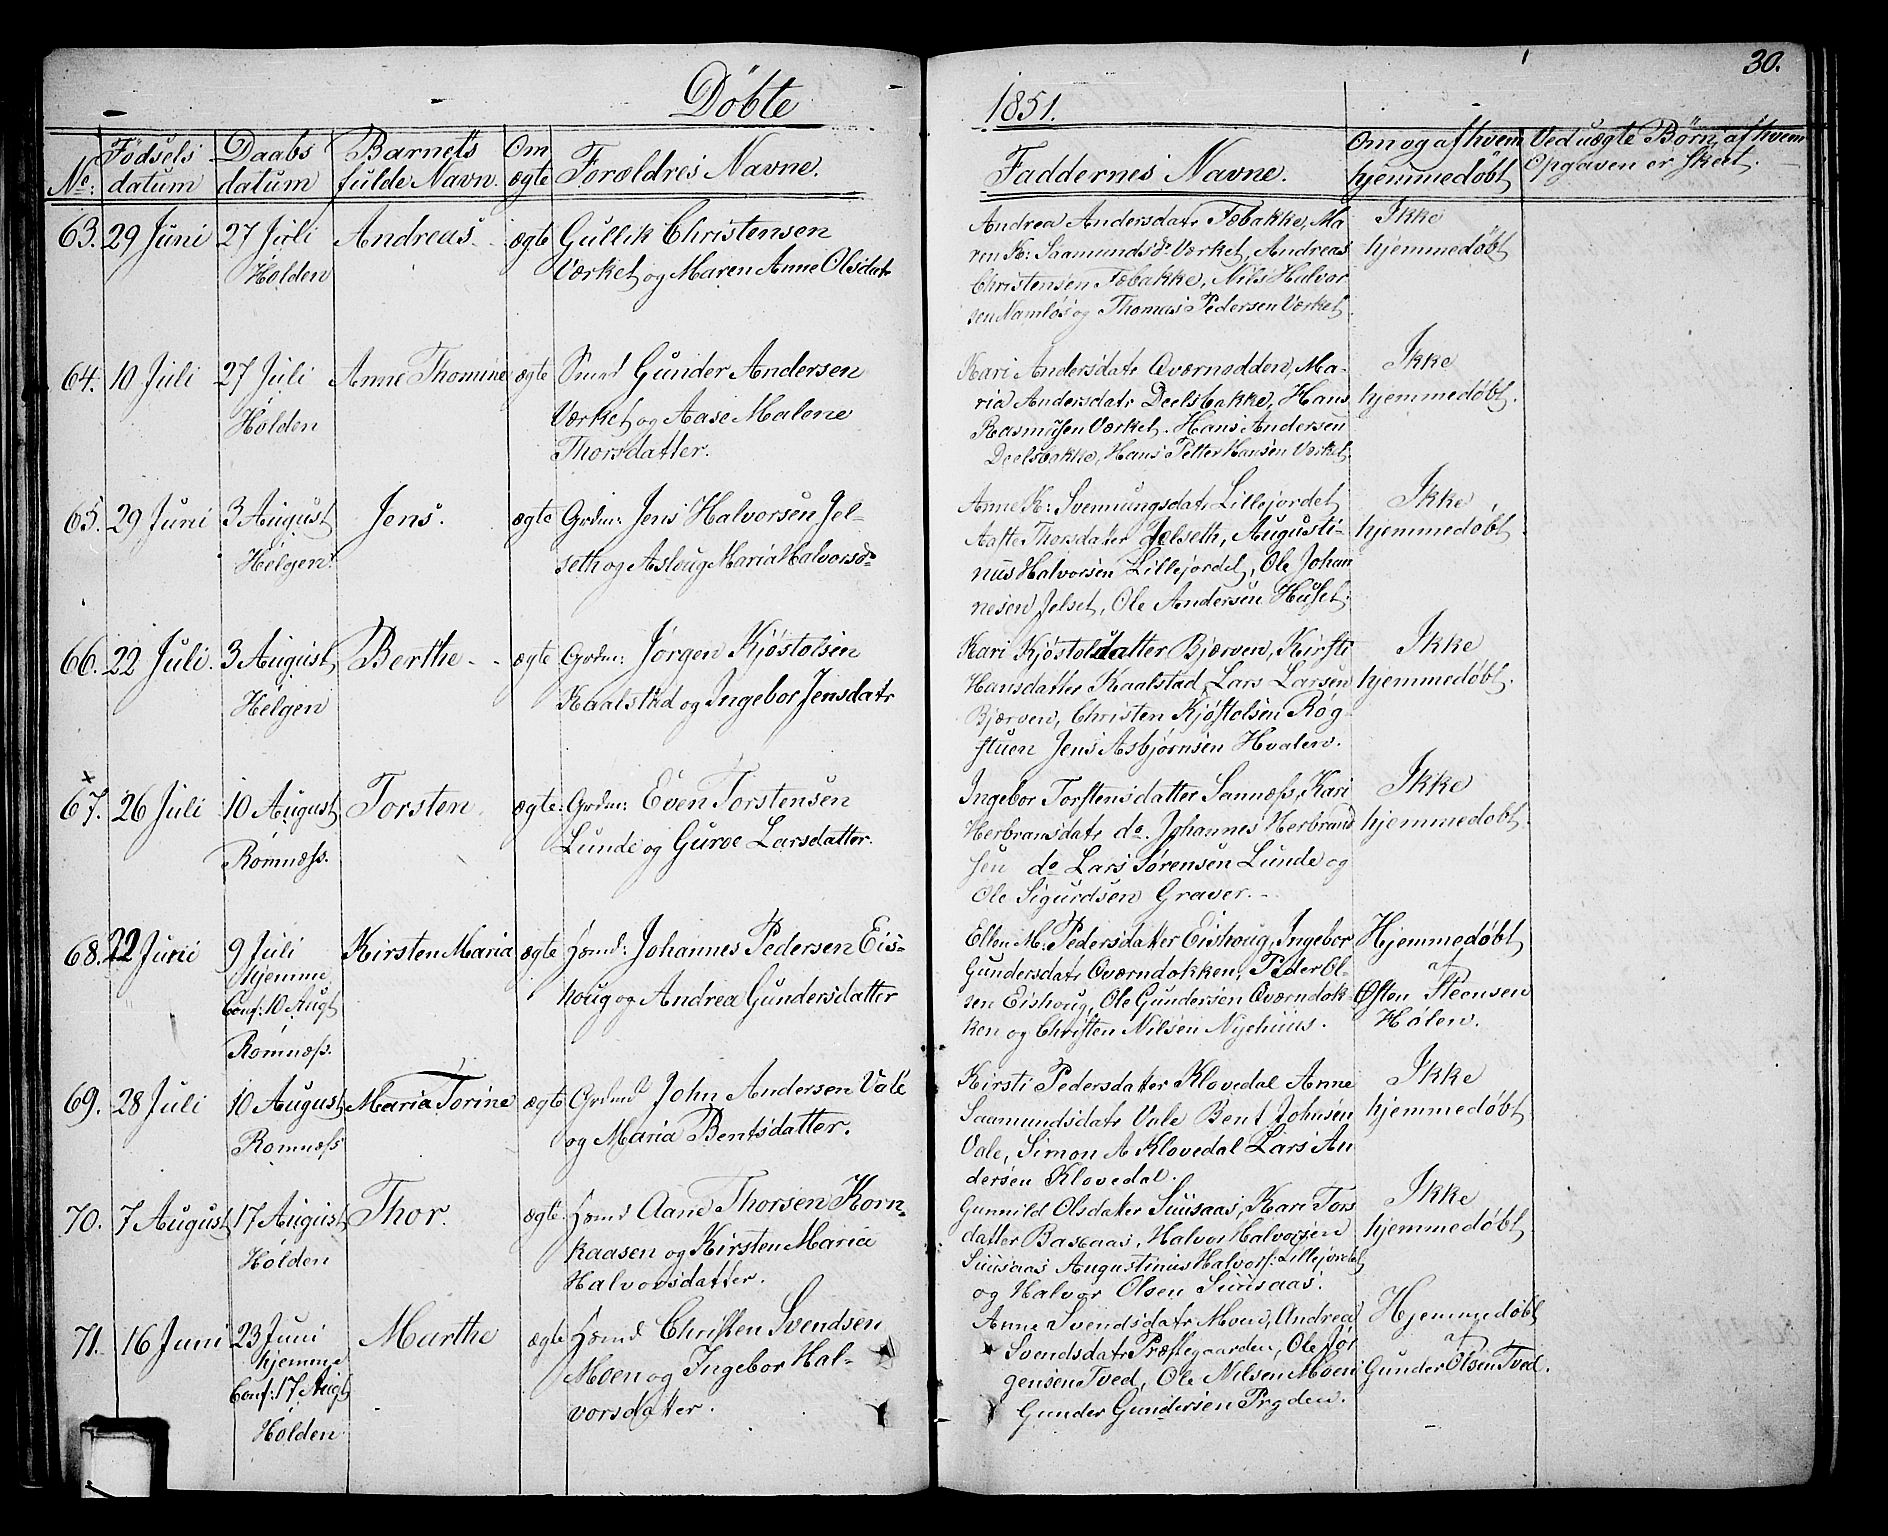 30.
Döbte
1851.
No:
Födsels
datum
Daabs
datum
Barnets
fulde Navn.
Om
ægte
Forældres Navne.
Faddernes Navne.
Om og af hvem
hjemmedøbt
Ved uægte Børn, af hvem
Opgaven er skeet.
63. 29 Juni
27 Juli
Holden
Andreas
ægte
Gullik Christensen
Værket og Maren Anne Olsdatr
Andrea Andersdatr Fæbakke, Ma-
ren K: Saamundsdr Værket, Andreas
Christensen Fæbakke, Nils Halvor
sen Namløs og Thomas Pedersen Værket.
Ikke
hjemmedøbt
64. 10 Juli
27 Juli
Holden
Anne Thomine
ægte
Smed Gunder Andersen
Værket og Aase Malene
Thorsdatter.
Kari Andersdatr Qværnodden, Ma-
ria Andersdatr Deelsbakke, Hans
Rasmussen Værket. Hans Andersen
Deelsbakke, Hans Petter Hansen Værket.
Ikke
hjemmedøbt.
65. 29 Juni
3 August
Helgen
Jens.
ægte
Grdm: Jens Halvorsen Jel-
seth og Asloug Maria Halvorsdr
Anne K: Svennungsdatr Lillejordet
Aaste Thorsdatter Jelseth, Augusti-
nus Halvorsen Lillejordet, Ole Johan
nesen Jelset, Ole Andersen Huset.
Ikke
hjemmedøbt.
66. 22 Juli.
3 August
Helgen
Berthe
ægte
Grdm: Jørgen Kjøstolsen
Kaalstad og Ingebor Jensdatr
Kari Kjøstolsdatter Bjerven, Kirsti
Hansdatter Kaalstad, Lars Larsen
Bjærven, Christen Kjøstolsen Rog-
stuen Jens Asbjørnsen Hvalen.
Ikke
hjemmedøbt.
x
67. 26 Juli
10 August
Romnæss.
Torsten
ægte:
Grdm: Even Torstensen
Lunde og Guroe Larsdatter.
Ingebor Torstensdatter Sannæss, Kari
Herbransdatr do. Johannes Herbrand
sen do Lars Sørensen Lunde og
Ole Sigurdsen Graver.
Ikke
hjemmedøbt.
68. 22 Juni
9 Juli
Hjemme
Conf: 10 Augt
Romnæss.
Kirsten Maria
ægte
Hsmd: Johannes Pedersen Eis-
houg og Andrea Gundersdatter
Ellen M: Pedersdatter Eishoug, Ingebor
Gundersdatr Qværndokken, Peder Ol-
sen Eishoug, Ole Gundersen Qværndok-
ken og Christen Nilsen Nyehuus.
Hjemmedøbt
af
Østen Steensen
Holen.
69. 28 Juli
10 August
Romnæss
Maria Torine
ægte
Grdmd John Andersen Vale
og Maria Bentsdatter.
Kirsti Pedersdatter Klovedal Anne
Saamundsdatr Vale Bent Johnsen
Vale, Simon A Klovedal Lars An
dersen Klovedal.
Ikke
hjemmedøbt
70. 7 August
17 August
Holden
Thor.
ægte.
Hsmd Aane Thorsen Korn-
kaasen og Kirsten Maria
Halvorsdatter.
Gunnild Olsdatter Suusaas, Kari Tors
datter Baseaas, Halvor Halvorsen
Suusaas Augustinus Halvors: Lillejordet
og Halvor Olsen Suusaas.
Ikke
hjemmedøbt
71. 16 Juni
23 Juni
hjemme
Conf: 17 Augt
Holden
Marthe
ægte
Hsmd Christen Svendsen
Moen og Ingebor Hal-
vorsdatter.
Anne Svendsdatr Moen, Andrea
Svendsdatr Præstegaarden, Ole Jör
gensen Tved, Ole Nilsen Moen
Gunder Gundersen Prgden.
Hjemmedøbt
af
Gunder Olsen Tved.